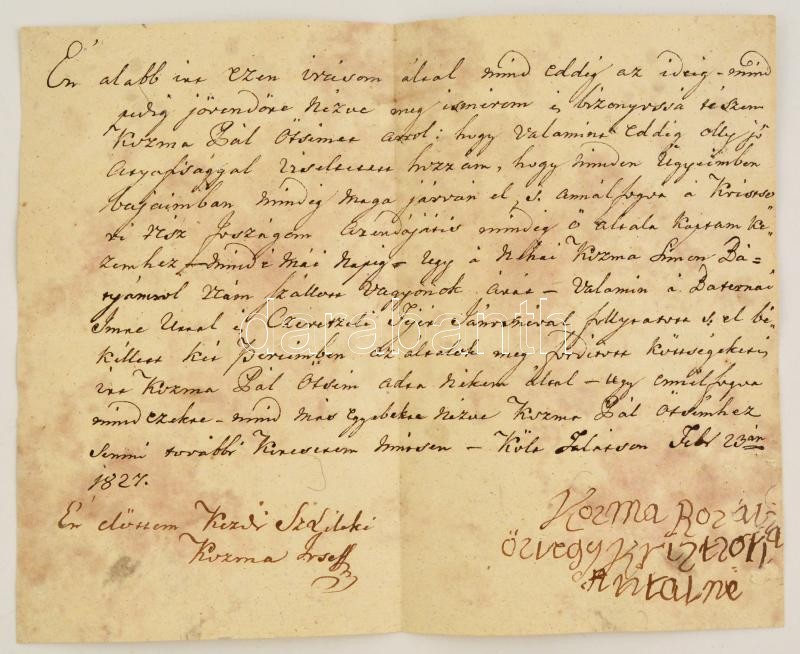 Én alább irt ezen irásom által mind eddig az ideig - mind
pedig jövendőre nézve meg ismérem és bizonyossá tészem
Kozma Pál Ötsémet arrol: hogy valamint eddig olly jó
Atyafisággal viseltetett hozzám, hogy minden ügyeimben
bajaimban mindég maga járván el, s. annálfogva á
rész Joszágom Arendáját is mindég ő általa kaptam ke-
zemhez - mind é mái napig - ugy á Néhai Kozma Simon Bá-
tyámrol rám szállott vagyonok árát - valamin á
Imre Urral és Fejér Jánosnéval follytatott s. el bé-
kéllett két Pereimben az általok meg fordított költségeket is
irt Kozma Pál Ötsém adta nékem által - ugy ennélfogva
mind ezekre - mind más egyebekre nézve Kozma Pál Ötsémhez
semmi további keresetem nintsen - Költ Febr 23án
1827.
Én előttem Kezdi
Kozma
darabanth
Kozma Rozália
özvegy Krisztsori
Antalné